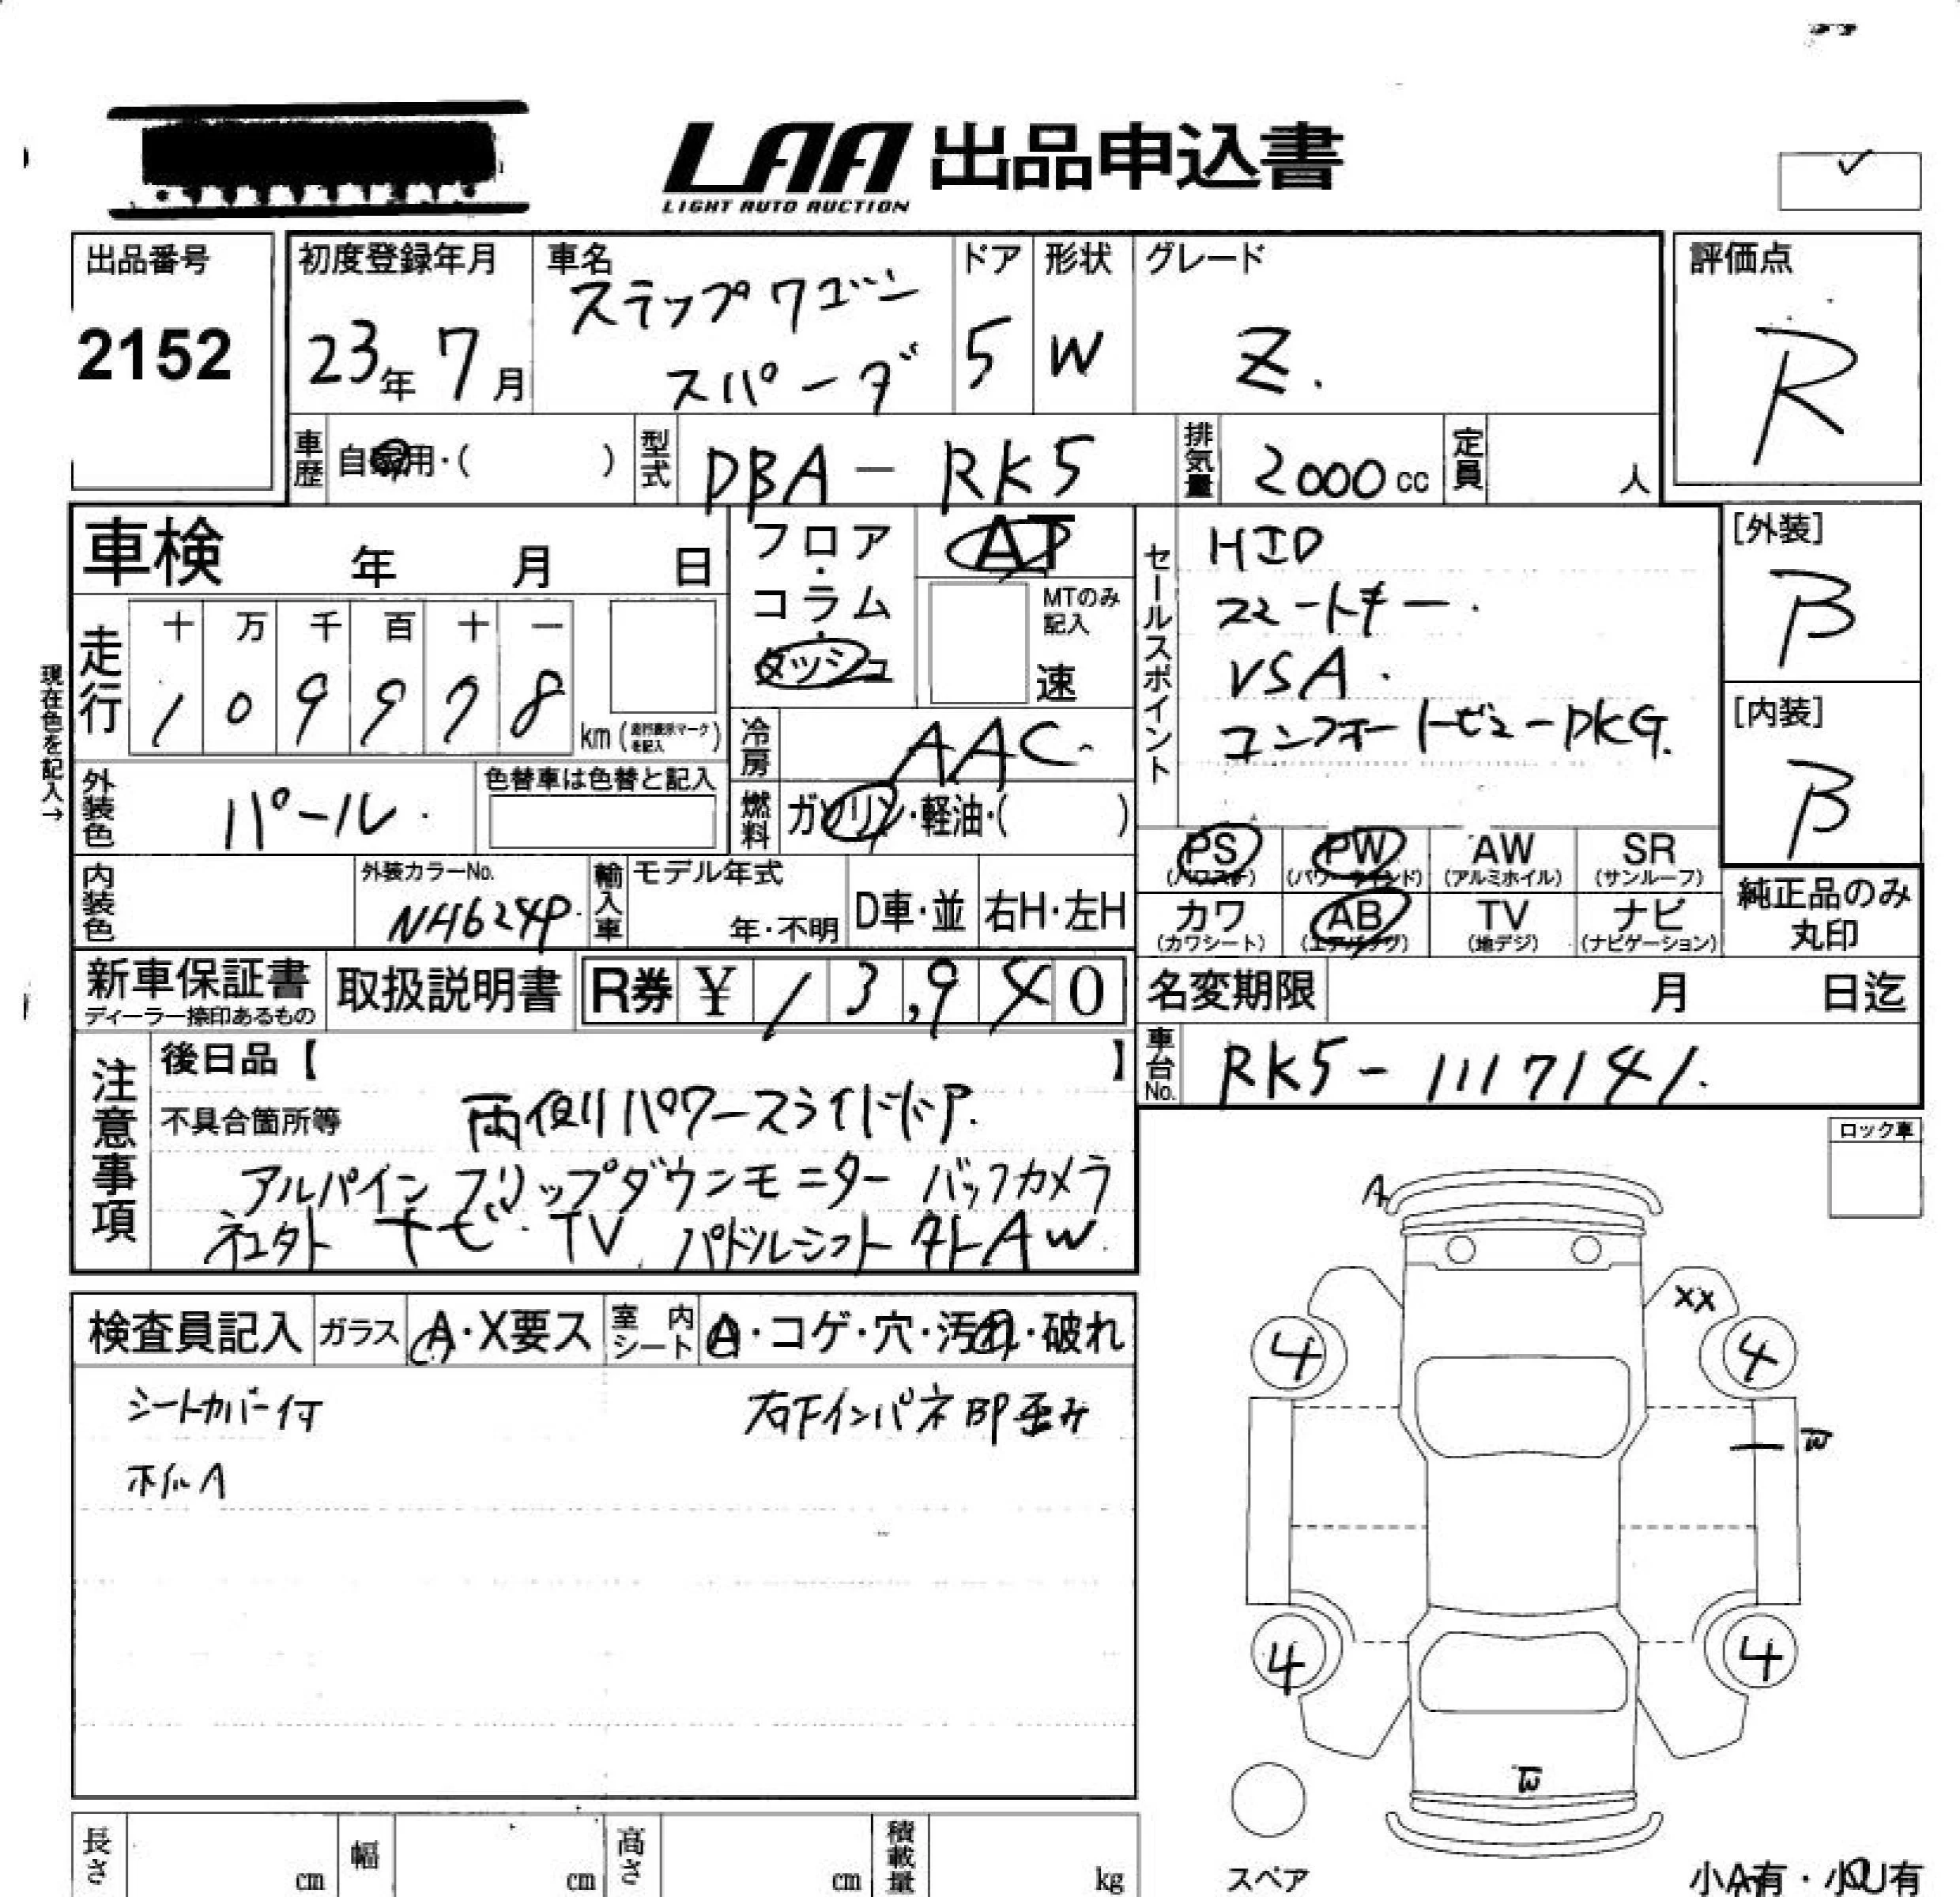 LAA 出品申込書
LIGHT AUTO AUCTION
出品番号
2152
初度登録年月
23年 7月
車名
ステップワゴン
スパーダ
ドア
5
形状
W
グレード
Z.
評価点
R
車歴 自家用・( )
型式 DBA-RK5
排気量 2000cc
定員 人
車検 年 月 日
走行
十 万 千 百 十 一
1 0 9 9 7 8 km (走行表示マークを記入)
現在色を記入→
フロア・コラム・ダッシュ
AT
MTのみ記入
速
冷房 AAC
燃料 ガソリン・軽油・( )
外装色 パール.
色替車は色替と記入
内装色
外装カラーNo.
NH624P.
輸入車
モデル年式
年・不明
D車・並
右H・左H
セールスポイント
HID
スマートキー.
VSA.
コンフォートビューPKG.
[外装]
B
[内装]
B
PS PW AW SR
(パワステ) (パワーウインド) (アルミホイル) (サンルーフ)
カワ AB TV ナビ
(カワシート) (エアバッグ) (地デジ) (ナビゲーション)
純正品のみ
丸印
新車保証書
ディーラー捺印あるもの
取扱説明書
R券 ¥ 13,940
名変期限 月 日迄
車台No. RK5-1117141.
注意事項
後日品【 】
不具合箇所等 両側パワースライドドア.
アルパイン フリップダウンモニター バックカメラ
社外 ナビ・TV パドルシフト 社外AW.
ロック車
検査員記入
ガラス A・X要ス
室内シート A・コゲ・穴・汚れ・破れ
シートカバー付
右下インパネ部歪み
ホイルA
A
XX
4 4
W
4 4
W
スペア
小A有・小U有
長さ cm
幅 cm
高さ cm
積載量 kg